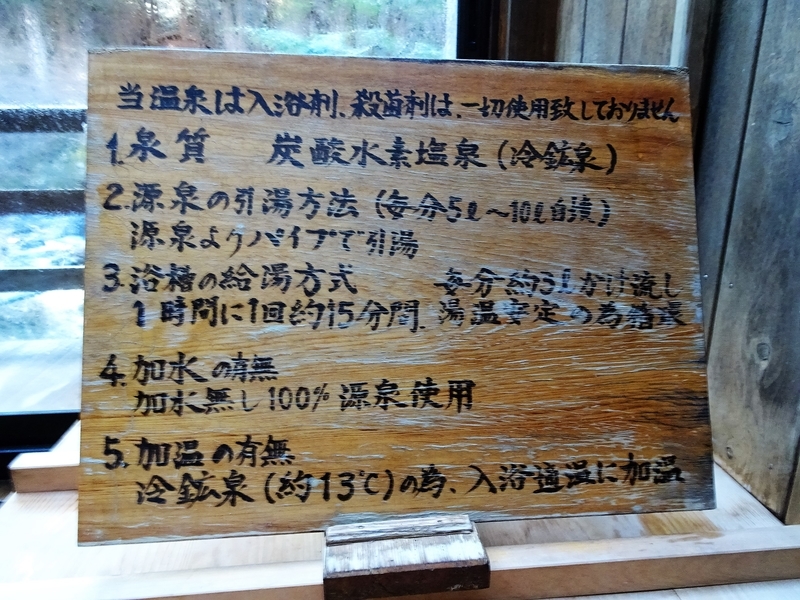 当温泉は入浴剤、殺菌剤は、一切使用致しておりません
1. 泉質 炭酸水素塩泉(冷鉱泉)
2. 源泉の引湯方法 (毎分5ℓ〜10ℓ自湧)
源泉よりパイプで引湯
3. 浴槽の給湯方式 毎分約5ℓかけ流し
1時間に1回約15分間、湯温安定の為循環
4. 加水の有無
加水無し100% 源泉使用
5. 加温の有無
冷鉱泉(約13℃)の為、入浴適温に加温